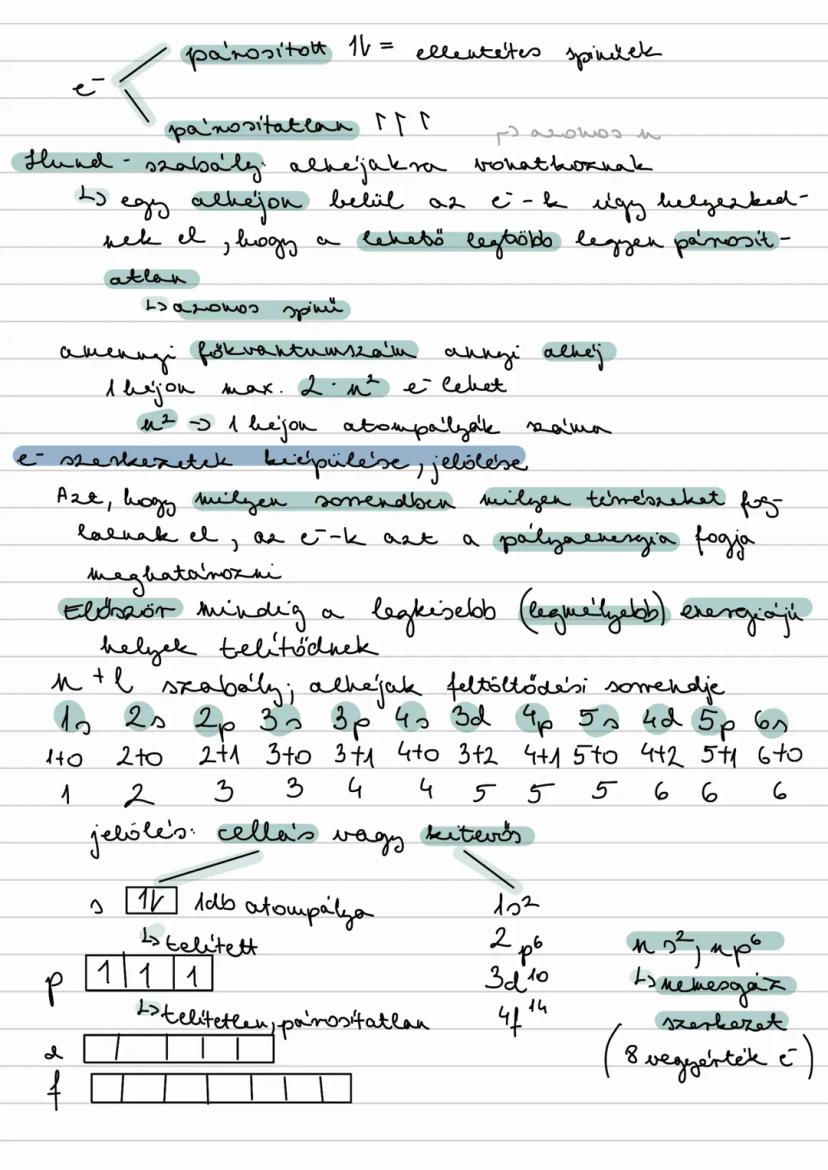 párosított 1l = ellentétes spinűek
e⁻
párosítatlan ↿↿↿
↱ azonos n
Hund-szabály: alhéjakra vonatkoznak
↳ egy alhéjon belül az e⁻-k úgy helyezked-
nek el, hogy a lehető legtöbb legyen párosít-
atlan
↳ azonos spinű
amennyi főkvantumszám annyi alhéj
1 héjon max. 2·n² e⁻ lehet
n² → 1 héjon atompályák száma
e⁻ szerkezetek kiépülése, jelölése
Azt, hogy milyen sorrendben milyen térrészeket fog-
lalnak el, az e⁻-k azt a pályaenergia fogja
meghatározni
Először mindig a legkisebb (legmélyebb) energiájú
helyek telítődnek
n+l szabály; alhéjak feltöltődési sorrendje
1s 2s 2p 3s 3p 4s 3d 4p 5s 4d 5p 6s
1+0 2+0 2+1 3+0 3+1 4+0 3+2 4+1 5+0 4+2 5+1 6+0
1 2 3 3 4 4 5 5 5 6 6 6
jelölés: cellás vagy kitevős
s 1l 1db atompálya 1s²
↳ telített 2p⁶ ns², np⁶
p 1 1 1 3d¹⁰ ↳ nemesgáz
↳ telítetlen, párosítatlan 4f¹⁴ szerkezet
d (8 vegyérték e⁻)
f